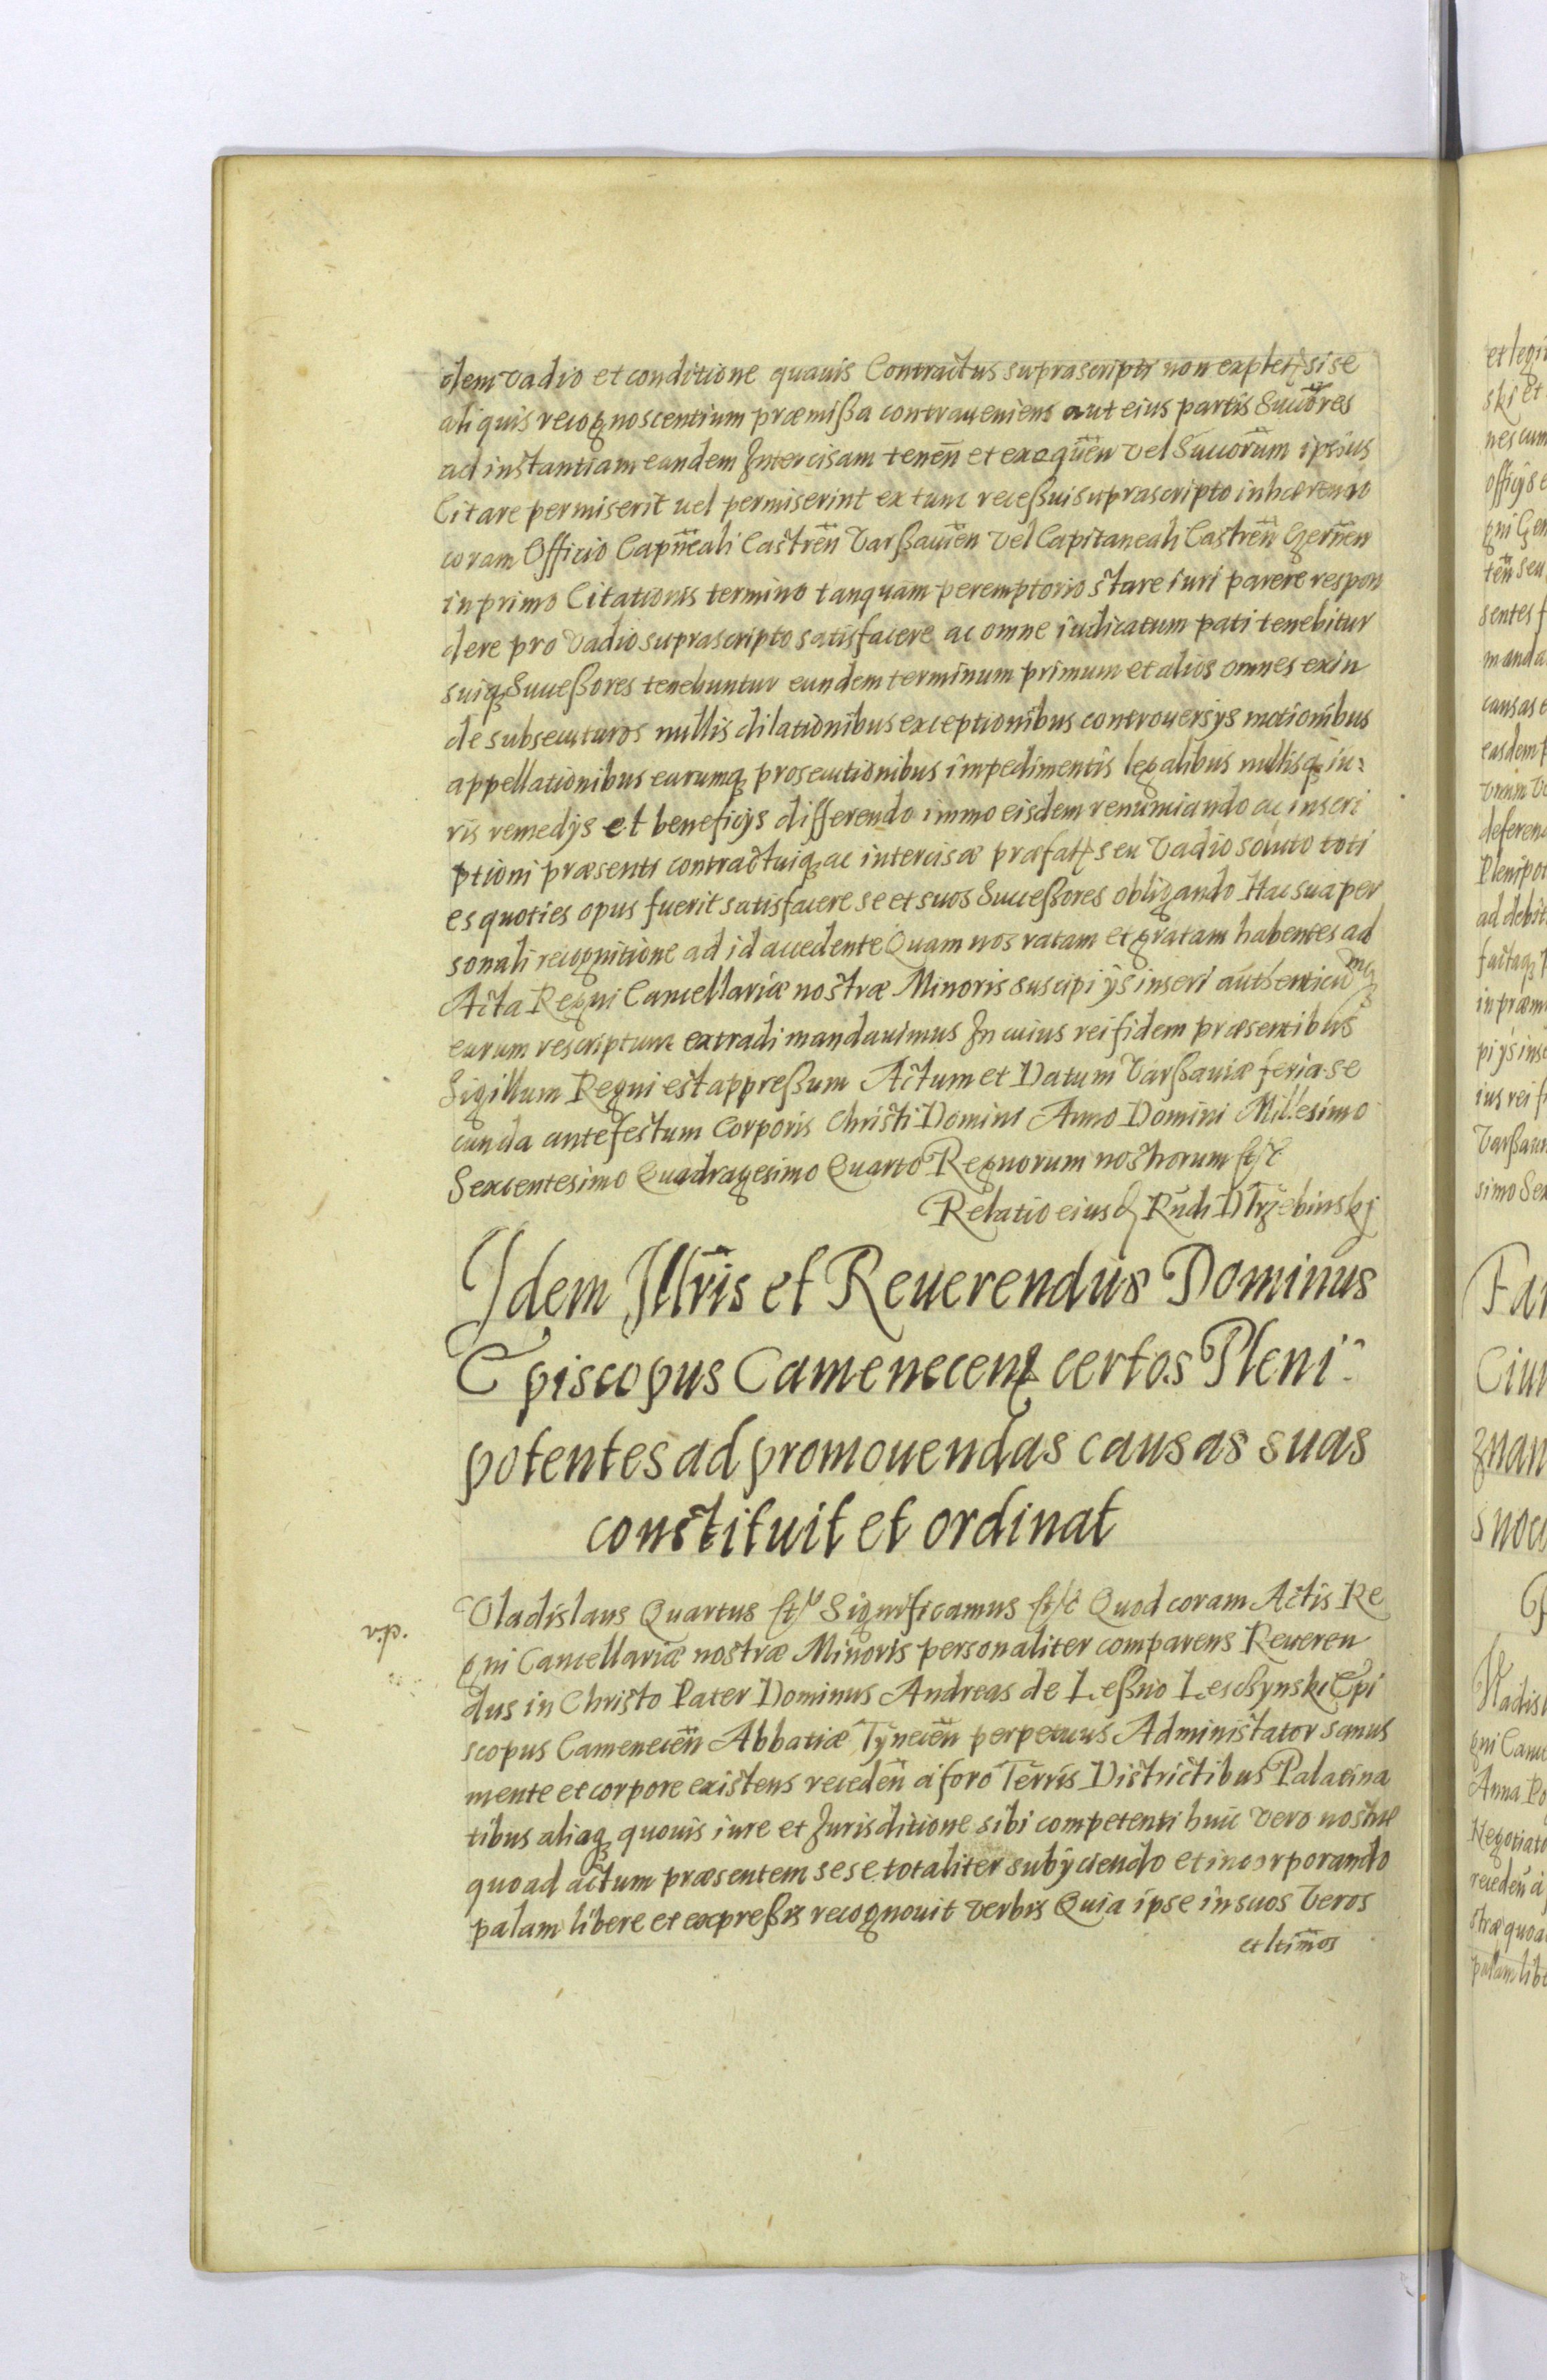 dem vadio et conditione quavis Contractus suprascripti non explet, si se
aliquis recognoscentium præmißa contraueniens aut eius partis Succores
ad instantiam eandem Intercisam tenen̄ et exequen̄ vel Succorum ipsius
Citare permiserit uel permiserint ex tunc receßui suprascripto inhærendo
coram Officio Capn̄eali Castren̄ Varßauien̄ vel Capitaneali Castren̄ Czernen̄
in primo Citationis termino tanquam peremptorio stare iuri parere respon
dere pro vadio suprascripto satisfacere ac omne iudicatum pati tenebitur
suiq, Succeßores tenebuntur eundem terminum primum et alios omnes exin
de subsecuturos nullis dilationibus exceptionibus controuersys motionibus
appellationibus earumq, prosecutionibus impedimentis legalibus nullisq, iu:
ris remedys et beneficys differendo immo eisdem renunciando ac inscri
ptioni præsenti contractuiq, ac intercisæ præfatæ seu vadio soluto toti
es quoties opus fuerit satisfacere se et suos Succeßores obligando. Hac sua per
sonali recognitione ad id accedente Quam nos ratam et gratam habentes ad
Acta Regni Cancellariæ nostræ Minoris suscipi ys inseri authenticumq,
earum rescriptum extradi mandauimus In cuius rei fidem præsentibus
Sigillum Regni est appreßum Actum et Datum Varßauiæ feria se
cunda ante festum Corporis Christi Domini Anno Domini Millesimo
Sexcentesimo Quadragesimo Quarto Regnorum nostrorum etc
Relatio eiusd Rn̄di D Trzebinskj
Idem Illr̄is et Reuerendus Dominus
Episcopus Camenecen̄ certos Pleni:
potentes ad promouendas causas suas
constituit et ordinat
Vladislaus Quartus etc Significamus etc Quod coram Actis Re
gni Cancellariæ nostræ Minoris personaliter comparens Reueren
dus in Christo Pater Dominus Andreas de Leßno Leschynski Epi
scopus Camenecen̄ Abbatiæ Tynecen̄ perpetuus Administator sanus
mente et corpore existens receden̄ a foro Terris Districtibus Palatina
tibus aliaq, quouis iure et Jurisditione sibi competenti huic vero nostræ
quo ad actum præsentem sese totaliter subyciendo et incorporando
palam libere et expreßis recognouit verbis Quia ipse in suos Veros
et ltimos